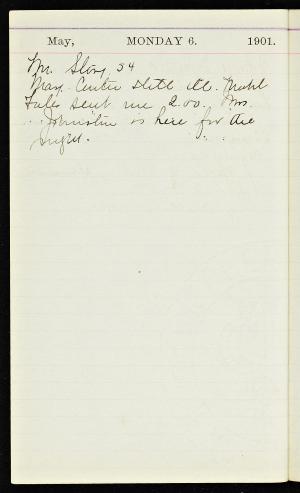 May, MONDAY 6. 1901.
Mr. Story 54
May. Center
Fales sent me 2.00. Mrs.
Johnston is here for the
night.